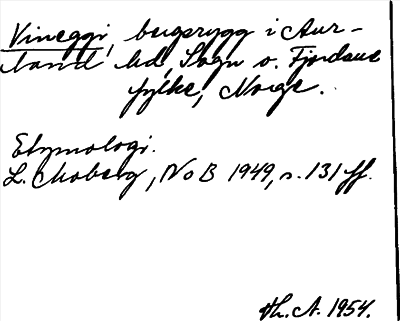 Vineggi, bergsrygg i Aur-
land hd, Sogn o. Fjordane
fylke, Norge.
Etymologi.
L. Moberg, NoB 1949, s. 131 ff.
Th. A. 1954.